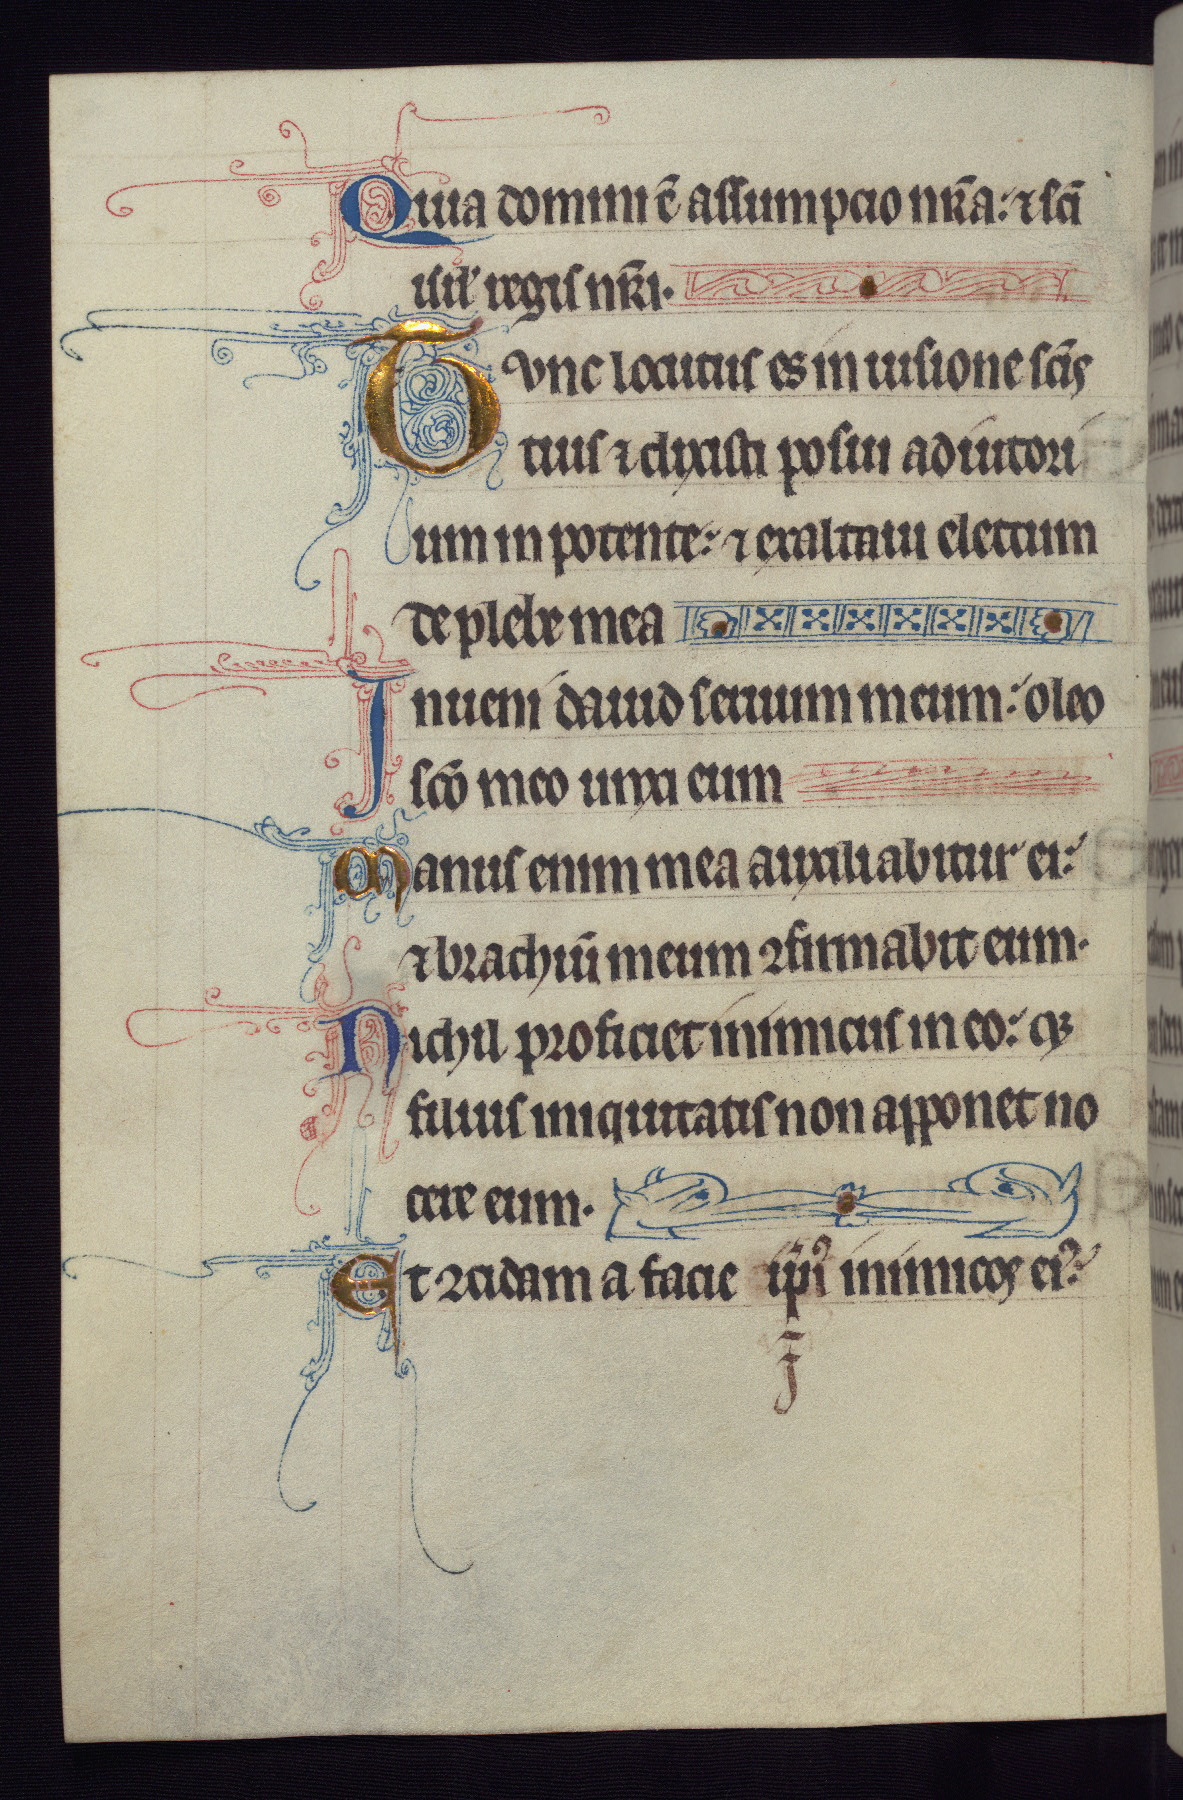 Quia domini ē assumpcio nr̄a: ⁊ sc̄i
isrl̓ regis nr̄i.
Tunc locutus es in uisione sc̄is
tuis ⁊ dixisti posui adiutori
um in potente: ⁊ exaltaui electum
de plebe mea
Inueni dauid seruum meum: oleo
sc̄o meo unxi eum
Manus enim mea auxiliabitur ei:
⁊ brachiū meum ꝯfirmabit eum.
Nichil proficiet inimicus in eo: ⁊
filius iniquitatis non apponet no
cere eum.
Et ꝯcidam a facie ip̄iꝰ inimicos eiꝰ: